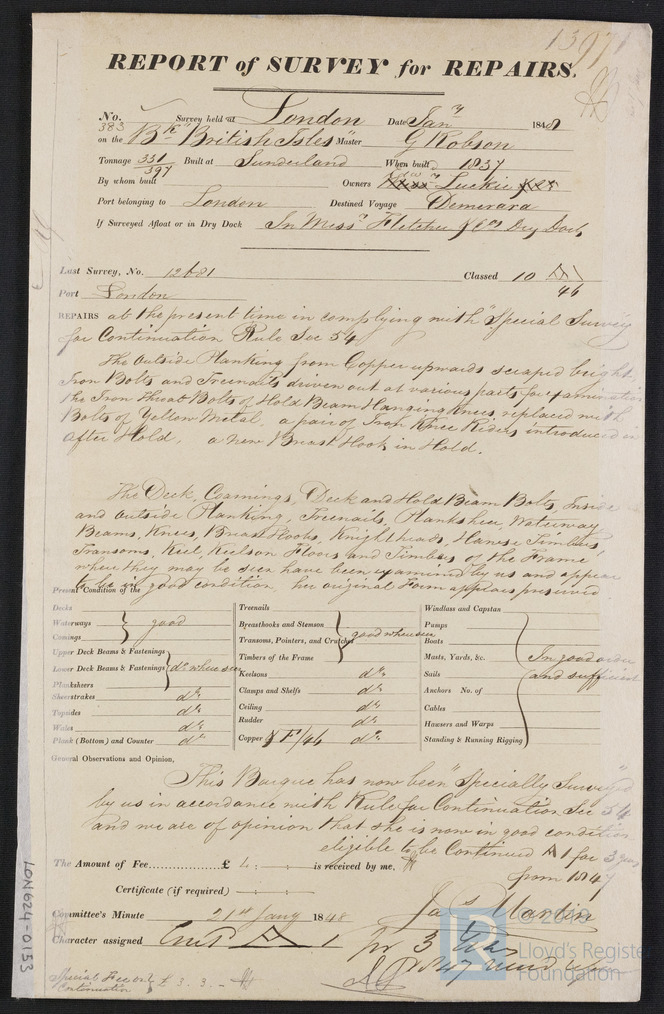 REPORT of SURVEY for REPAIRS.
No. 383 Survey held at London Date Jany 1848
on the Bk "British Isles" Master G Robson
Tonnage 331/397 Built at Sunderland When built 1837
By whom built Owners Luckie & Co
Port belonging to London Destined Voyage Demerara
If Surveyed Afloat or in Dry Dock In Messrs Fletcher & Co's Dry Dock
Last Survey, No. 12681 Classed 10 A
Port London 46
REPAIRS at the present time in complying with "Special Survey
for Continuation Rule Sec 54
The Outside Planking from Copper upwards scraped bright
Iron Bolts and Treenails driven out at various parts for examination
the Iron throat Bolts of Hold Beam Hanging Knees replaced with
Bolts of Yellow Metal, a pair of Iron Knee Riders introduced in
after Hold, a new Breast Hook in Hold.
The Deck, Comings, Deck and Hold Beam Bolts, Inside
and outside Planking, Treenails, Plankshea, Waterway
Beams, Knees, Breast Hooks, Knightheads, Hawse Timbers,
Transoms, Keel, Keelson Floors and Timbers of the Frame
where they may be seen have been examined by us and appear
to be in good condition, her original Form appears preserved
Present Condition of the
Decks
Waterways good
Comings
Upper Deck Beams & Fastenings
Lower Deck Beams & Fastenings do where seen
Planksheers
Sheerstrakes do
Topsides do
Wales do
Plank (Bottom) and Counter do
Treenails
Breasthooks and Stemson
Transoms, Pointers, and Crutches good where seen
Timbers of the Frame
Keelsons do
Clamps and Shelfs do
Ceiling do
Rudder do
Copper & F/46 do
Windlass and Capstan
Pumps
Boats
Masts, Yards, &c. In good order
Sails and sufficient
Anchors No. of
Cables
Hawsers and Warps
Standing & Running Rigging
General Observations and Opinion,
This Barque has now been "Specially Surveyed"
by us in accordance with Rule for Continuation Sec 54
and we are of opinion that she is now in good condition
eligible to be Continued A 1 for 3 years
from 1847
The Amount of Fee £ 4 : : is received by me.
Certificate (if required) : :
Jas Martin
Committee's Minute 21st Jany 1848
Character assigned Contd A 1 for 3 Yrs
Special Fee out £ 3. 3. -
Continuation
LON624-0133
© 2018
LR
Lloyd's Register
Foundation